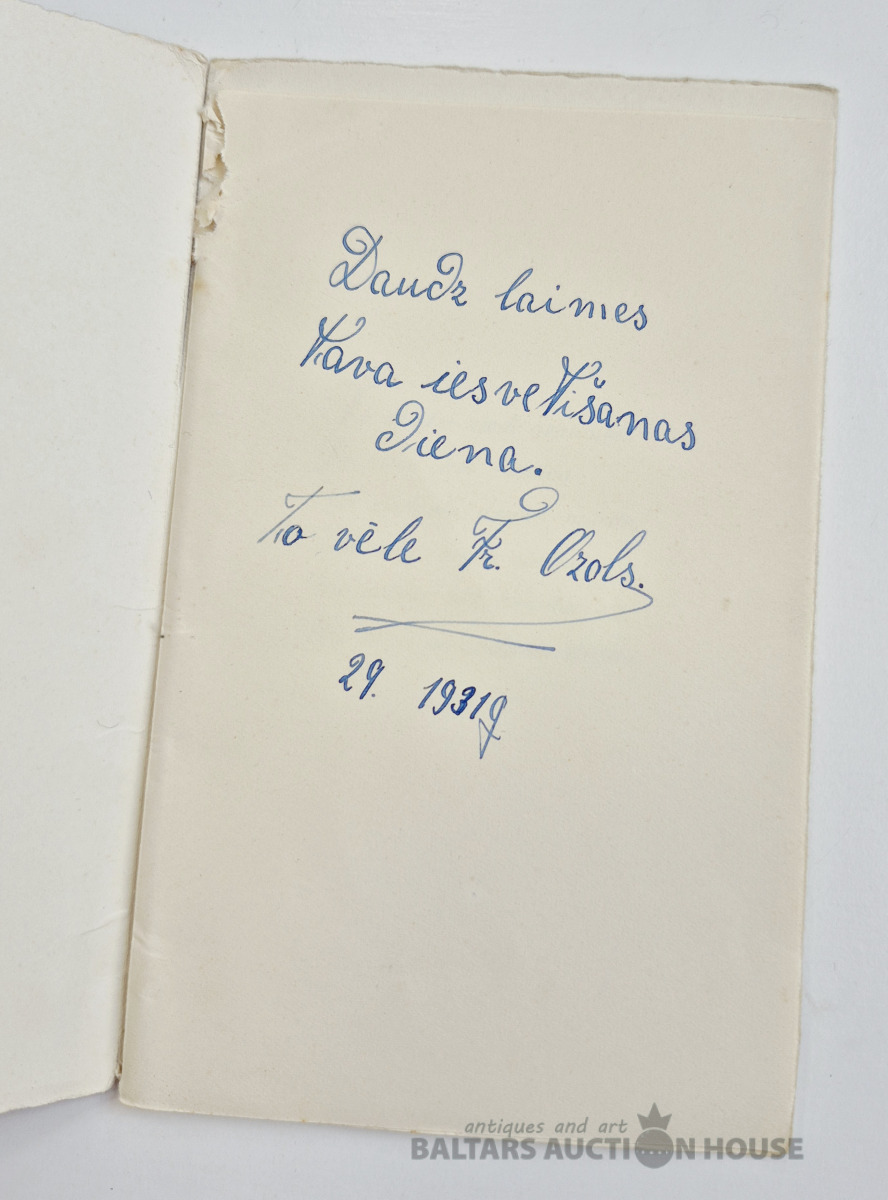 Daudz laimes
Tava iesvetišanas
diena.
To vēle Fr. Ozols.
29. 1931g
antiques and art
BALTARS AUCTION HOUSE